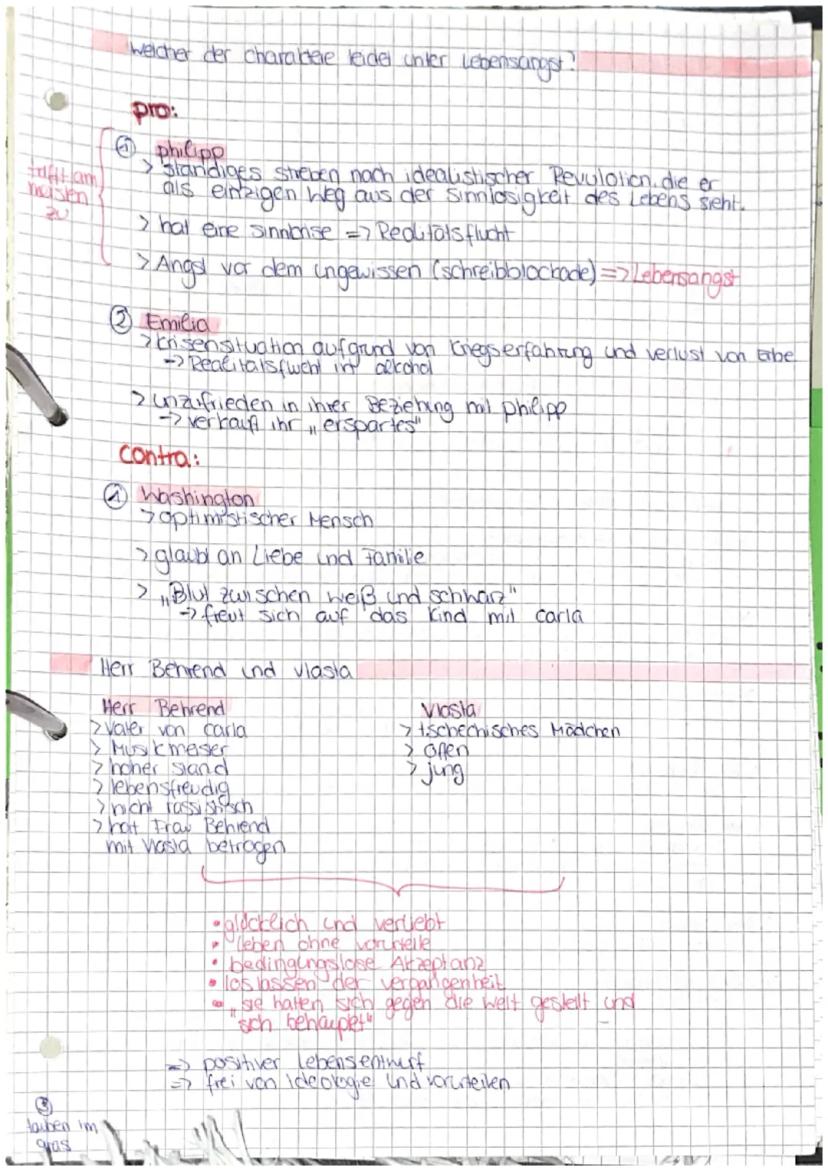 Welcher der charaktere leidet unter Lebensangst?
pro:
① philipp
> ständiges streben nach idealistischer Revulotion, die er
als einzigen Weg aus der Sinnlosigkeit des Lebens sieht.
trifft am
meisten
zu
> hat eine sinnkrise => Realitätsflucht
> Angst vor dem ungewissen (schreibblockade) => Lebensangst
② Emilia
> krisensituation aufgrund von kriegserfahrung und verlust von Erbe
-> Realitätsflucht in alkohol
> unzufrieden in ihrer Beziehung mit philipp
-> verkauft ihr „erspartes"
contra:
① Washington
> optimistischer Mensch
> glaubt an Liebe und Familie
> „Blut zwischen weiß und schwarz"
-> freut sich auf das kind mit carla
Herr Behrend und vlasta
Herr Behrend
> vater von carla
> Musikmeister
> hoher stand
> lebensfreudig
> nicht rassistisch
> hat Frau Behrend
mit vlasta betrogen
Vlasta
> tschechisches Mädchen
> offen
> jung
• glücklich und verliebt
• leben ohne vorurteile
• bedingungslose Akzeptanz
• loslassen der vergangenheit
• „sie hatten sich gegen die welt gestellt und
sich behauptet"
=> positiver Lebensentwurf
=> frei von Ideologie und vorurteilen
③
tauben im
gras